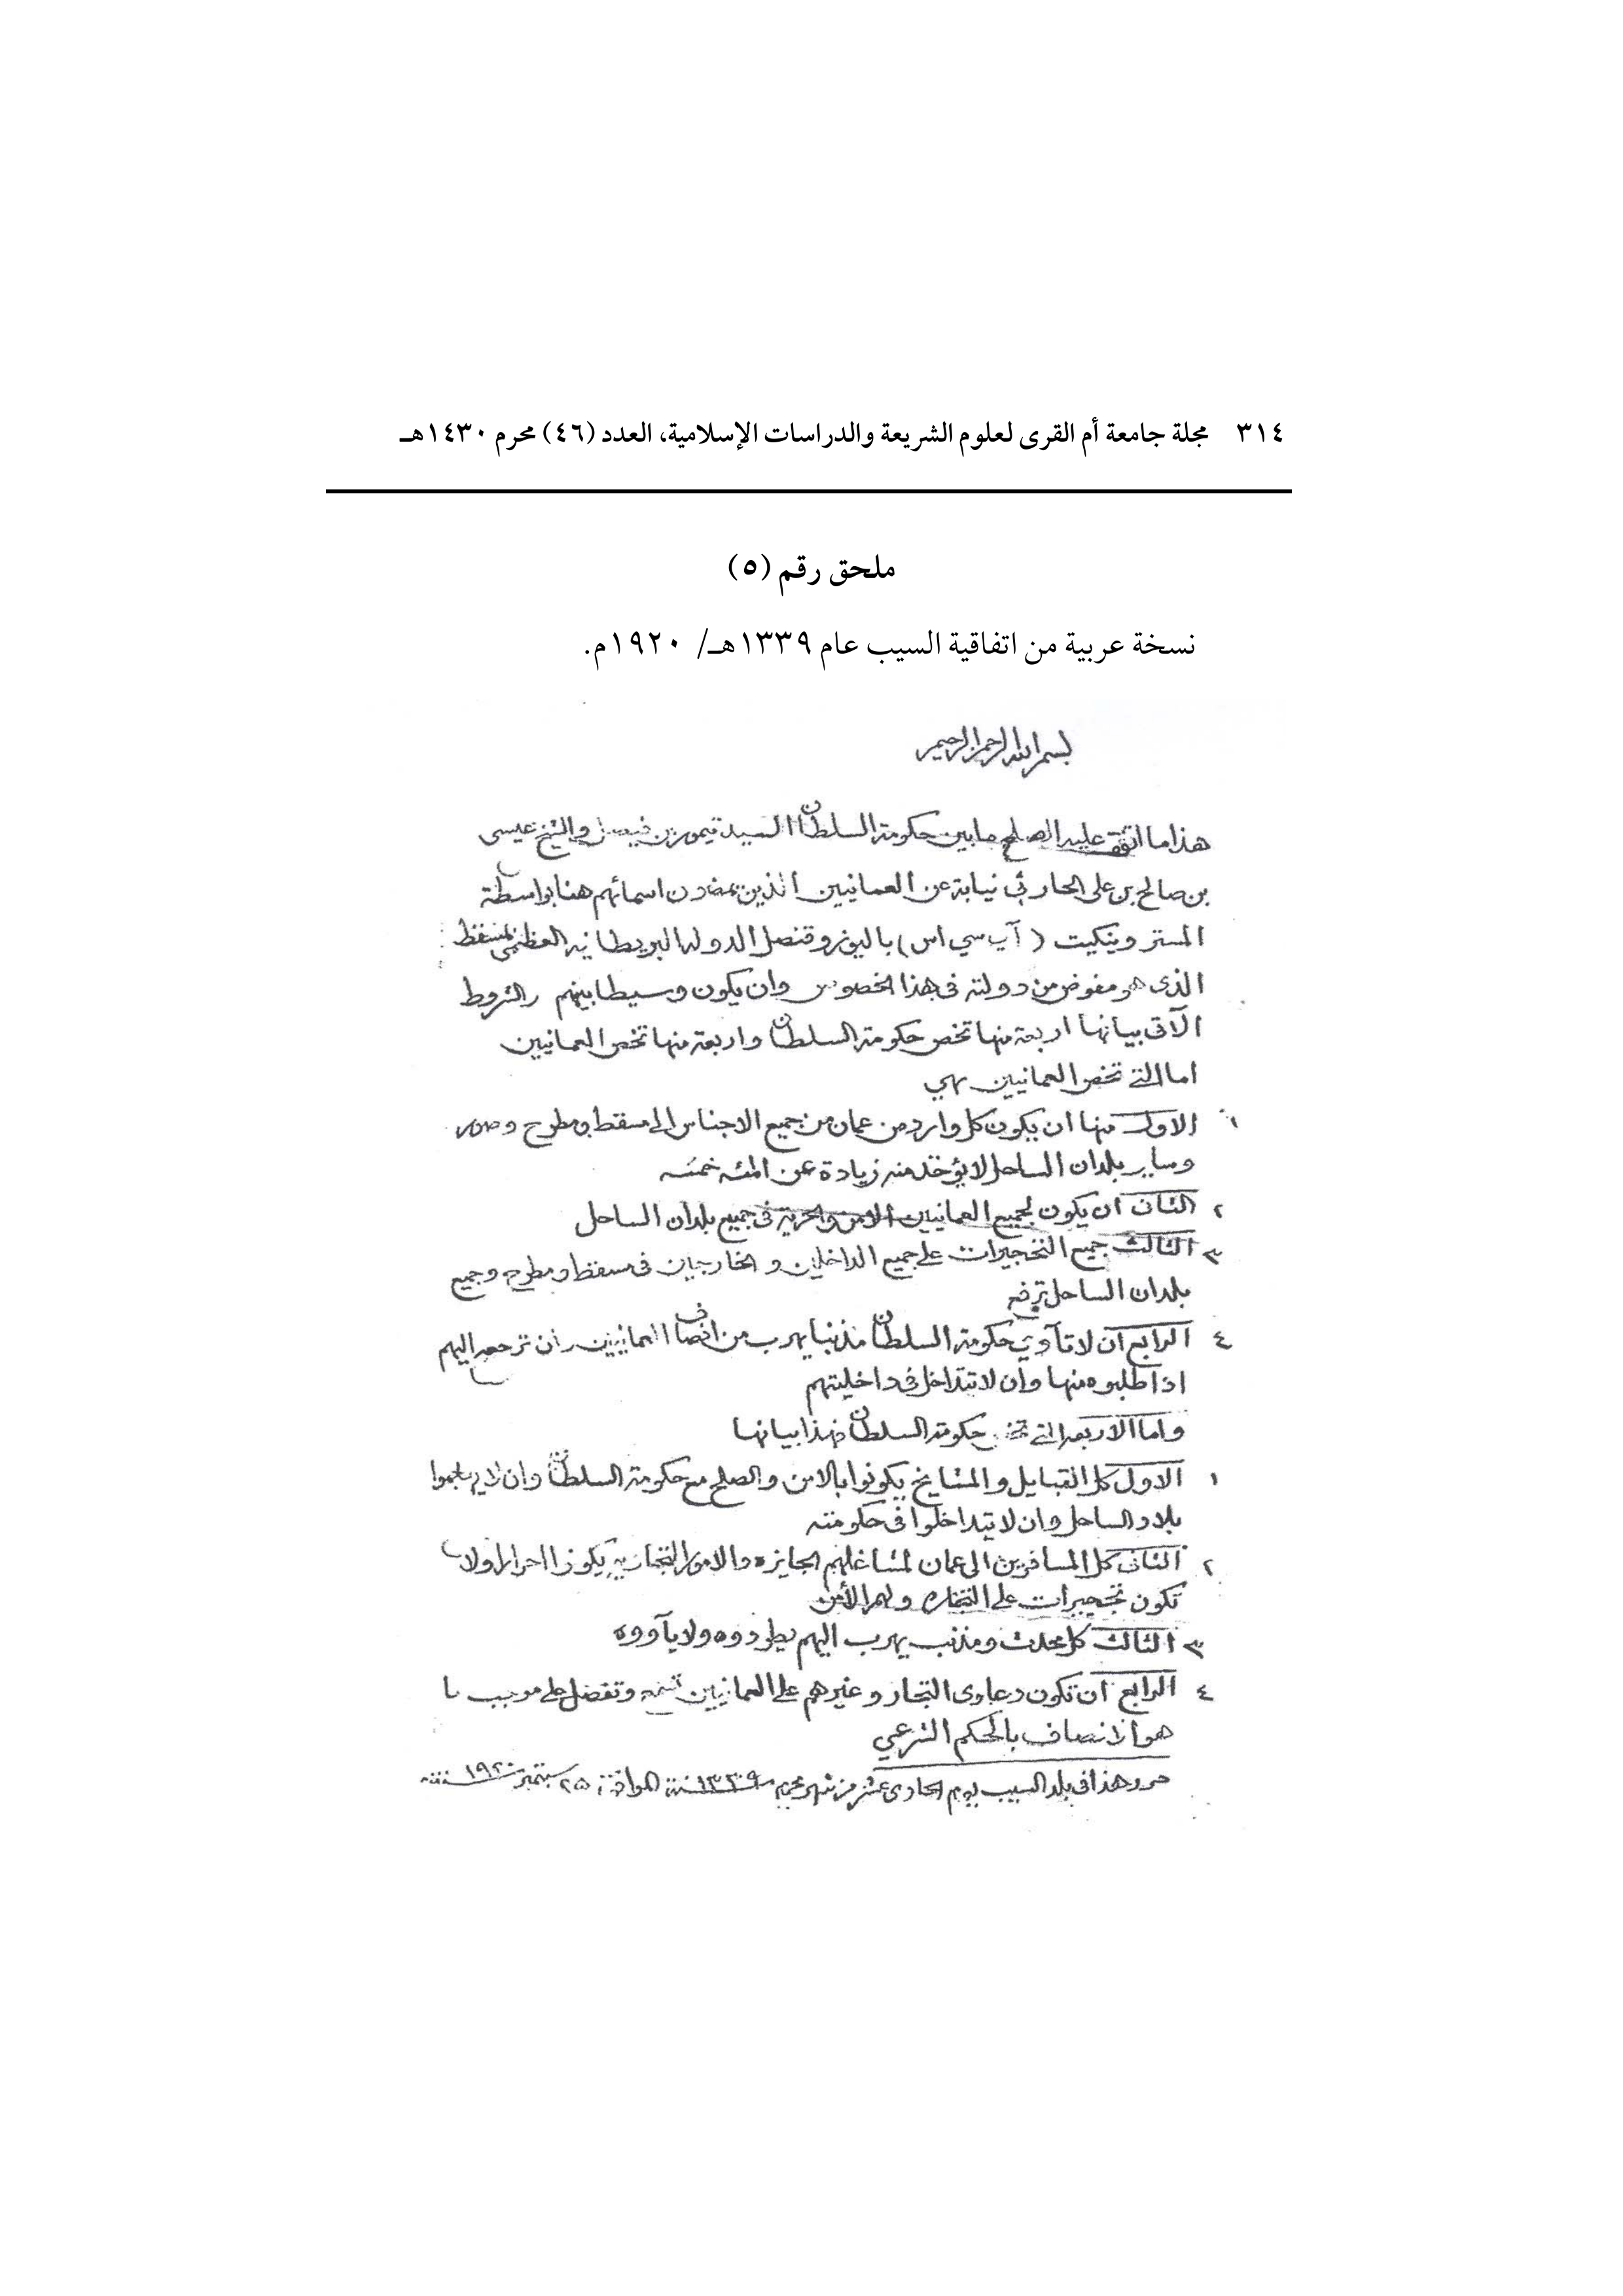 ٣١٤ مجلة جامعة أم القرى لعلوم الشريعة والدراسات الإسلامية، العدد (٤٦) محرم ١٤٣٠هـ
ملحق رقم (٥)
نسخة عربية من اتفاقية السيب عام ١٣٣٩هـ/ ١٩٢٠م.
بسم الله الرحمن الرحيم
هذا ما اتفق عليه الصلح ما بين حكومة السلطان السيد تيمور بن فيصل والشيخ عيسى
بن صالح بن علي الحارثي نيابة عن العمانيين الذين يمضون اسمائهم هنا بواسطة
المستر وينكيت (آي سي اس) باليوز وقنصل الدولة البريطانية العظمى بمسقط
الذي هو مفوض من دولته في هذا الخصوص وان يكون وسيطا بينهم والشروط
الآتي بيانها اربعة منها تخص حكومة السلطان واربعة منها تخص العمانيين
اما التي تخص العمانيين هي
١ الاول منها ان يكون كل وارد من عمان من جميع الاجناس الى مسقط ومطرح وصور
وساير بلدان الساحل لا يؤخذ منه زيادة عن المئة خمسه
٢ الثاني ان يكون لجميع العمانيين الامن والحرية في جميع بلدان الساحل
٣ الثالث جميع التحجيرات على جميع الداخلين والخارجين في مسقط ومطرح وجميع
بلدان الساحل ترفع
٤ الرابع ان لا تآوي حكومة السلطان مذنبا يهرب من انصاف العمانيين وان ترجعه اليهم
اذا طلبوه منها وان لا تتداخل في داخليتهم
واما الاربعة التي تخص حكومة السلطان فهذا بيانها
١ الاول كل القبايل والمشايخ يكونوا بالامن والصلح مع حكومة السلطان وان لا يهاجموا
بلاد الساحل وان لا يتداخلوا في حكومته
٢ الثاني كل المسافرين الى عمان لمشاغلهم الجايزه والامور التجاريه يكونوا احرارا ولا
تكون تحجيرات على التجاره ولهم الأمن
٣ الثالث كل محدث ومذنب يهرب اليهم يطردوه ولا يآووه
٤ الرابع ان تكون دعاوى التجار وغيرهم على العمانيين تسمع وتفصل على موجب ما
هو الانصاف بالحكم الشرعي
حرر هذا في بلد السيب يوم الحادي عشر من شهر محرم سنة ١٣٣٩ الموافق ٢٥ سبتمبر سنة ١٩٢٠